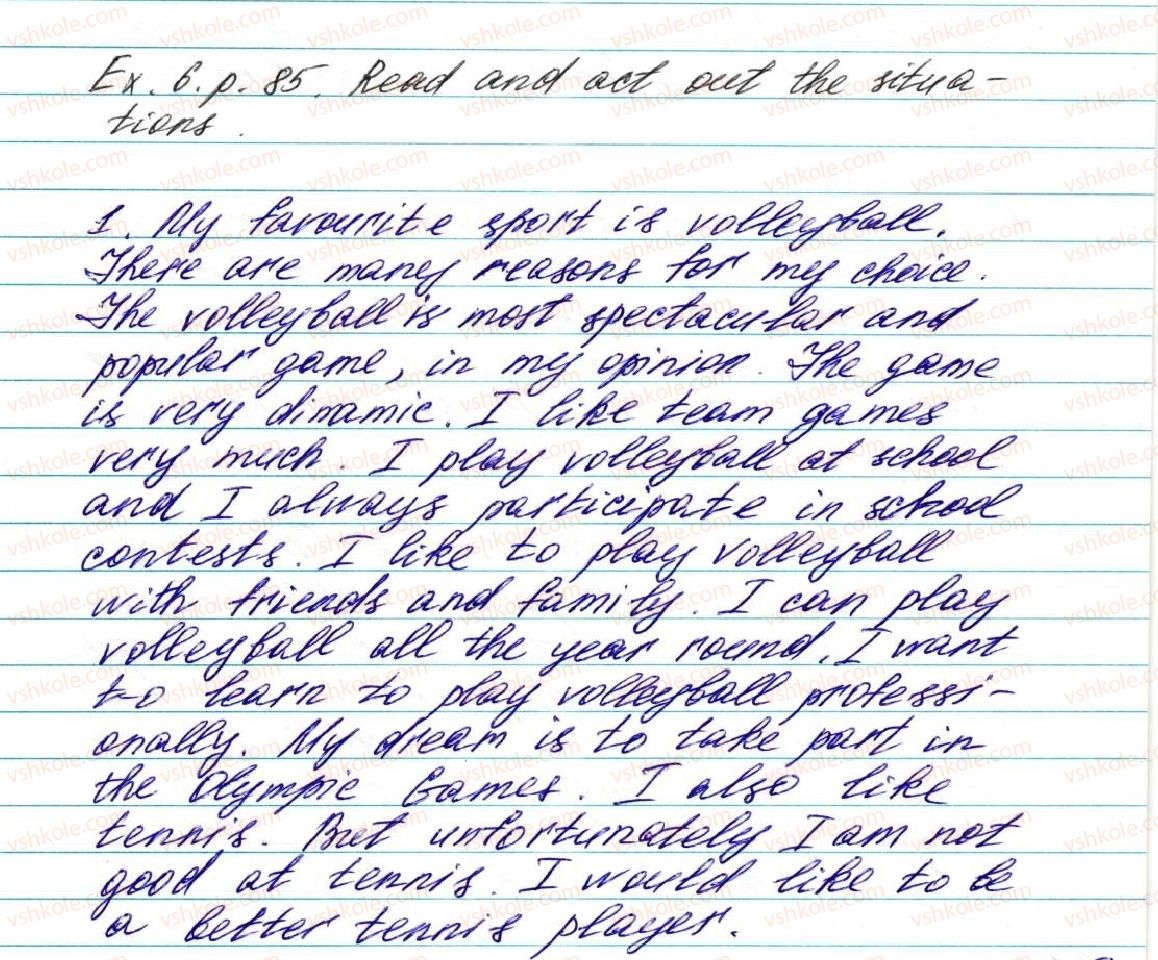 Ex. 6. p. 85. Read and act out the situa-
tions.
1. My favourite sport is volleyball.
There are many reasons for my choice.
The volleyball is most spectacular and
popular game, in my opinion. The game
is very dinamic. I like team games
very much. I play volleyball at school
and I always participate in school
contests. I like to play volleyball
with friends and family. I can play
volleyball all the year round. I want
to learn to play volleyball professi-
onally. My dream is to take part in
the Olympic Games. I also like
tennis. But unfortunately I am not
good at tennis. I would like to be
a better tennis player.
vshkole.com